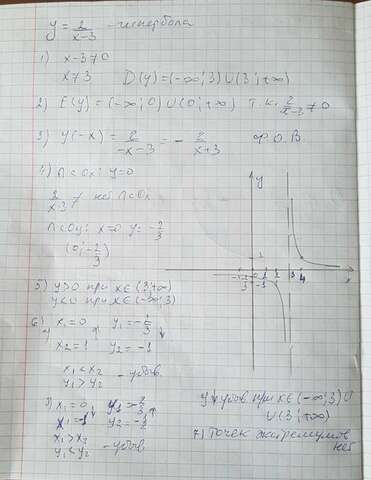 y = 2/(x-3) - гипербола
1) x-3≠0
x≠3 D(y)=(-∞;3)∪(3;+∞)
2) E(y)=(-∞;0)∪(0;+∞) т.к. 2/(x-3)≠0
3) y(-x) = 2/(-x-3) = - 2/(x+3) Ф.О.В.
4) ∩ c Ox: y=0
2/(x-3) ≠ нет ∩ c Ox
∩ c Oy: x=0 y=-2/3
(0;-2/3)
5) y>0 при x∈(3;+∞)
y<0 при x∈(-∞;3)
6) x₁=0 y₁=-2/3
x₂=1 y₂=-1
x₁<x₂
y₁>y₂ - убыв.
x₁=0 y₁=-2/3
x₁=-1 y₂=-1/2
x₁>x₂
y₁<y₂ - убыв.
y
1
3 4
x
y убыв при x∈(-∞;3)∪
∪(3;+∞)
7) Точек экстремумов
нет